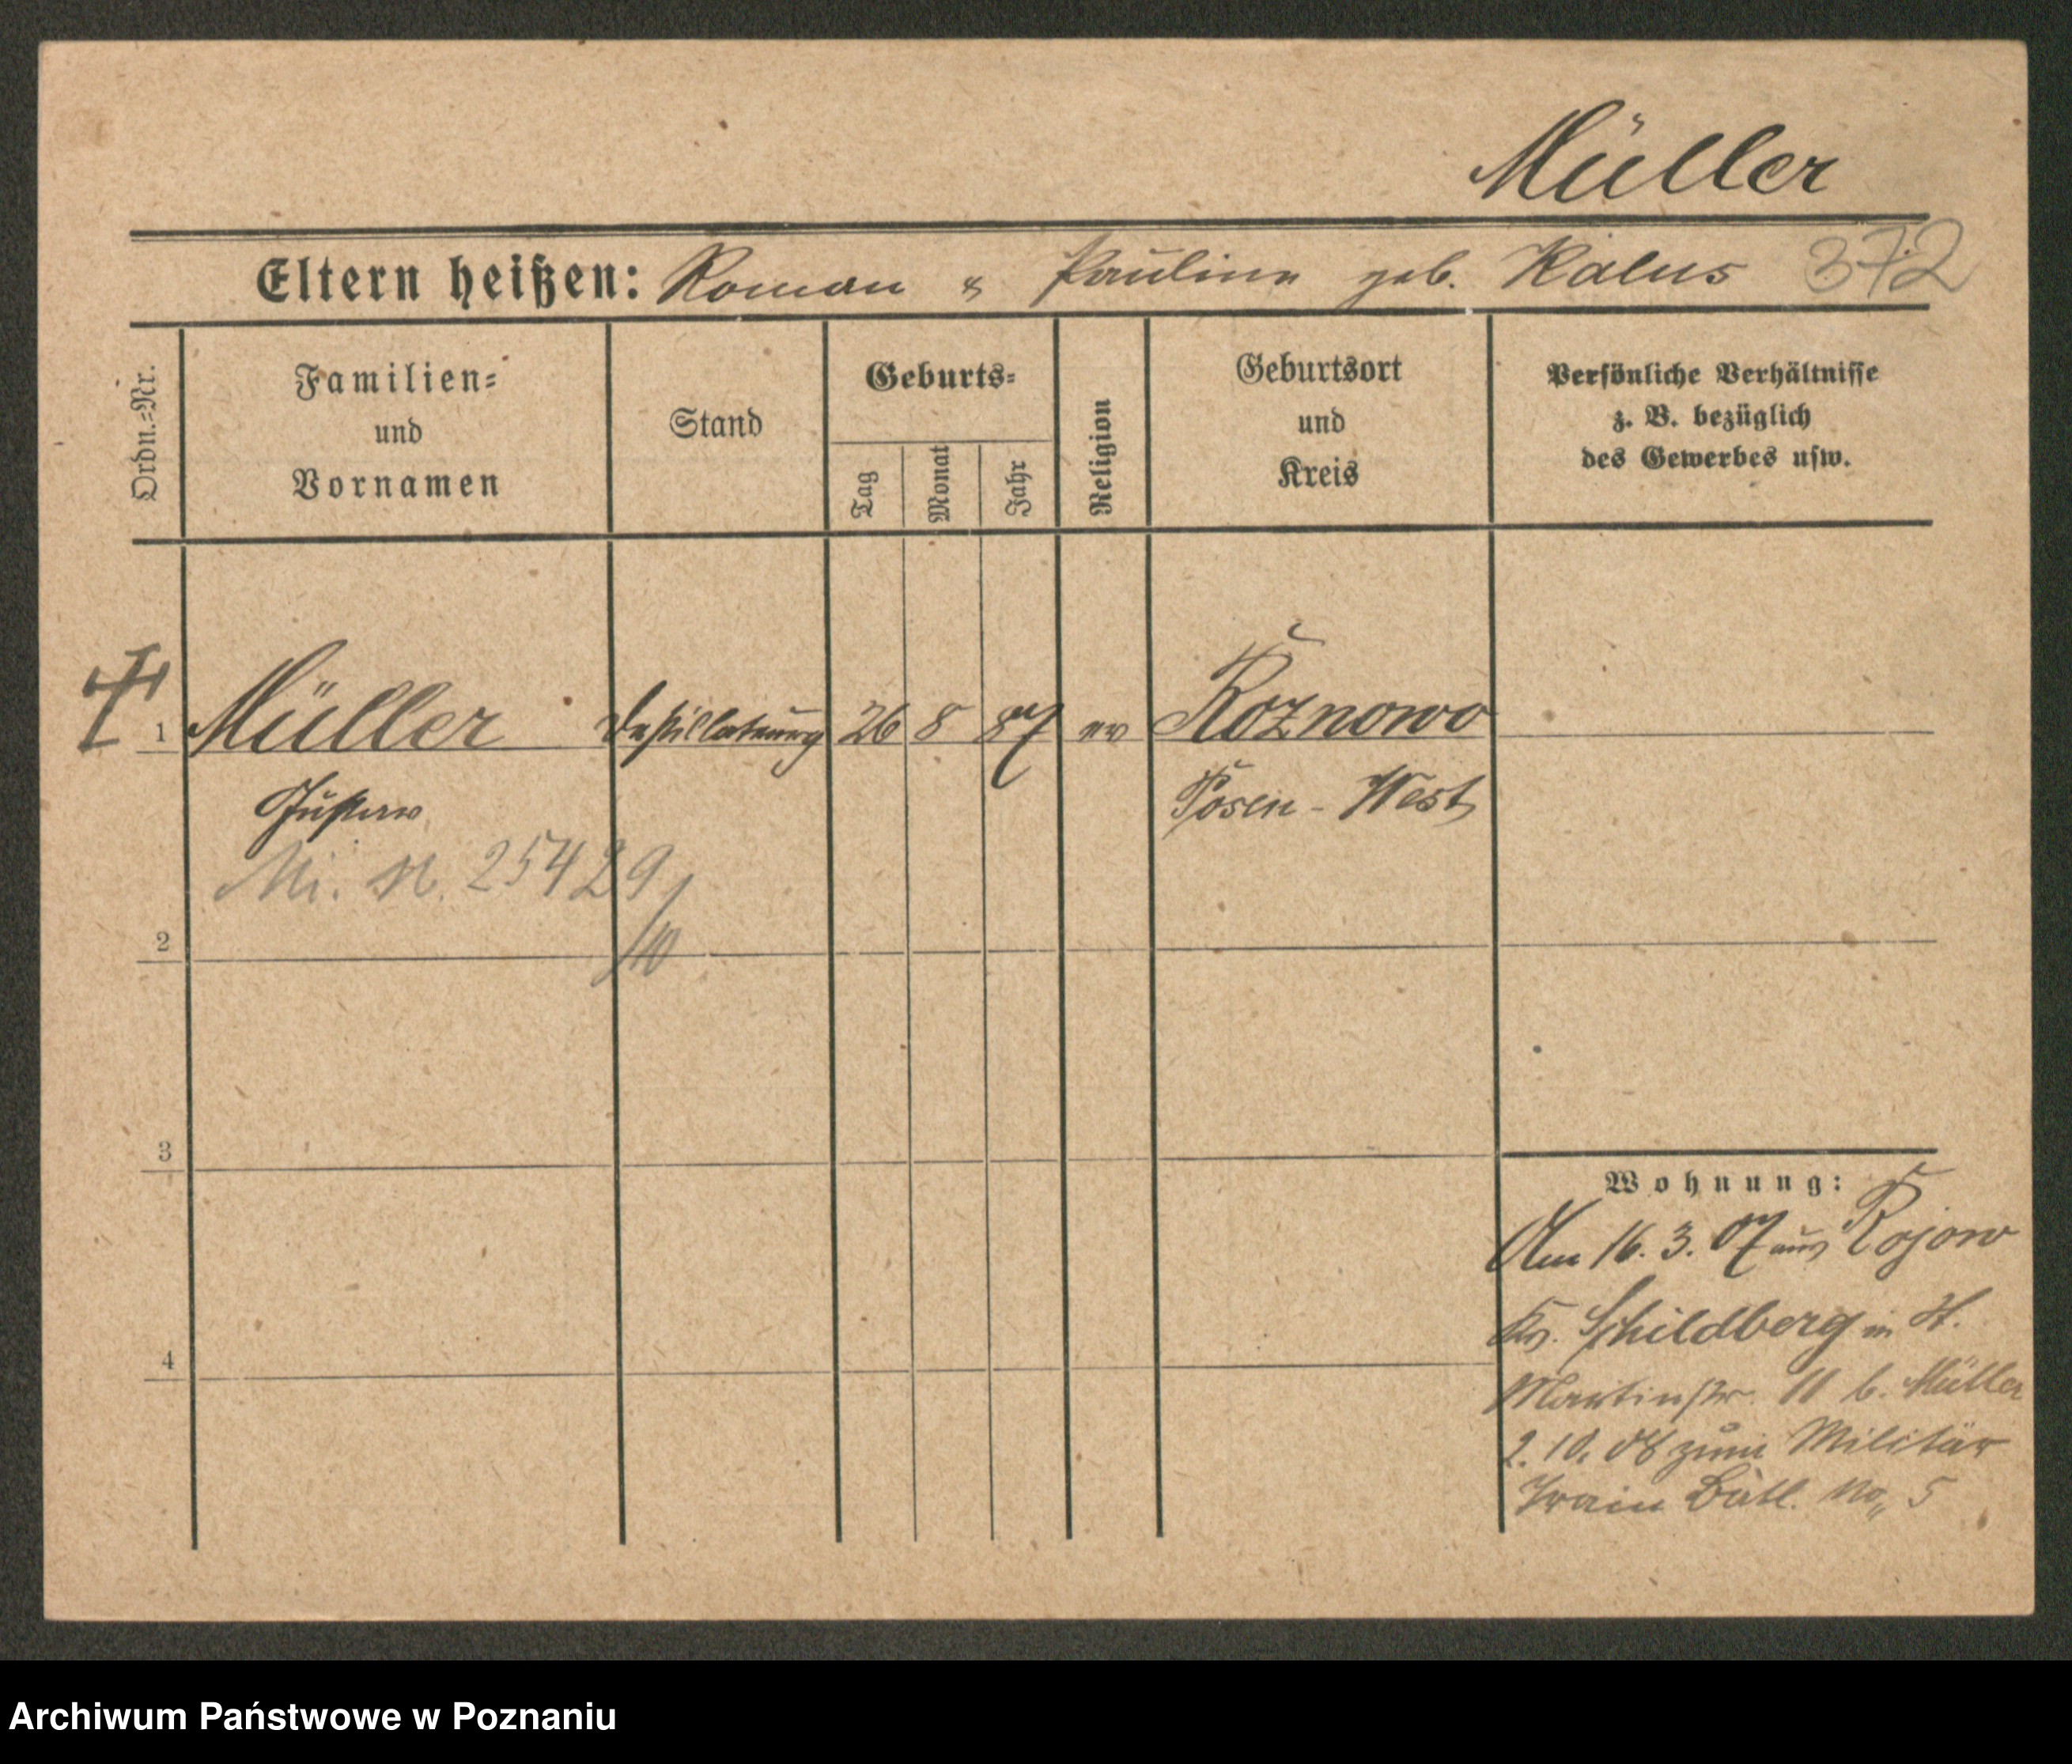 Müller
Eltern heißen: Roman & Pauline geb. Kalus 372
Ordn.=Nr.
Familien=
und
Vornamen
Stand
Geburts=
Tag
Monat
Jahr
Religion
Geburtsort
und
Kreis
Persönliche Verhältnisse
z. B. bezüglich
des Gewerbes usw.
1 Müller 26 8 87 ev Rožnowo
Gustav Posen - West
Mi. N. 25429
/10
2
3
4
Wohnung:
Am 16. 3. 07 aus Rojow
Kr. Schildberg in St.
Martinstr. 11 b. Müller
2. 10. 08 zum Militär
Train Batl. No„ 5
Archiwum Państwowe w Poznaniu